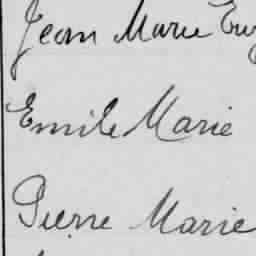 Jean Marie
Emile Marie
Pierre Marie